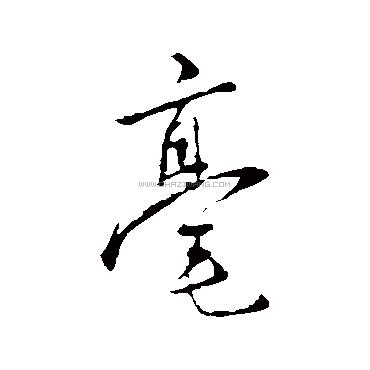 毫
WWW.CHAZIDIAN.COM